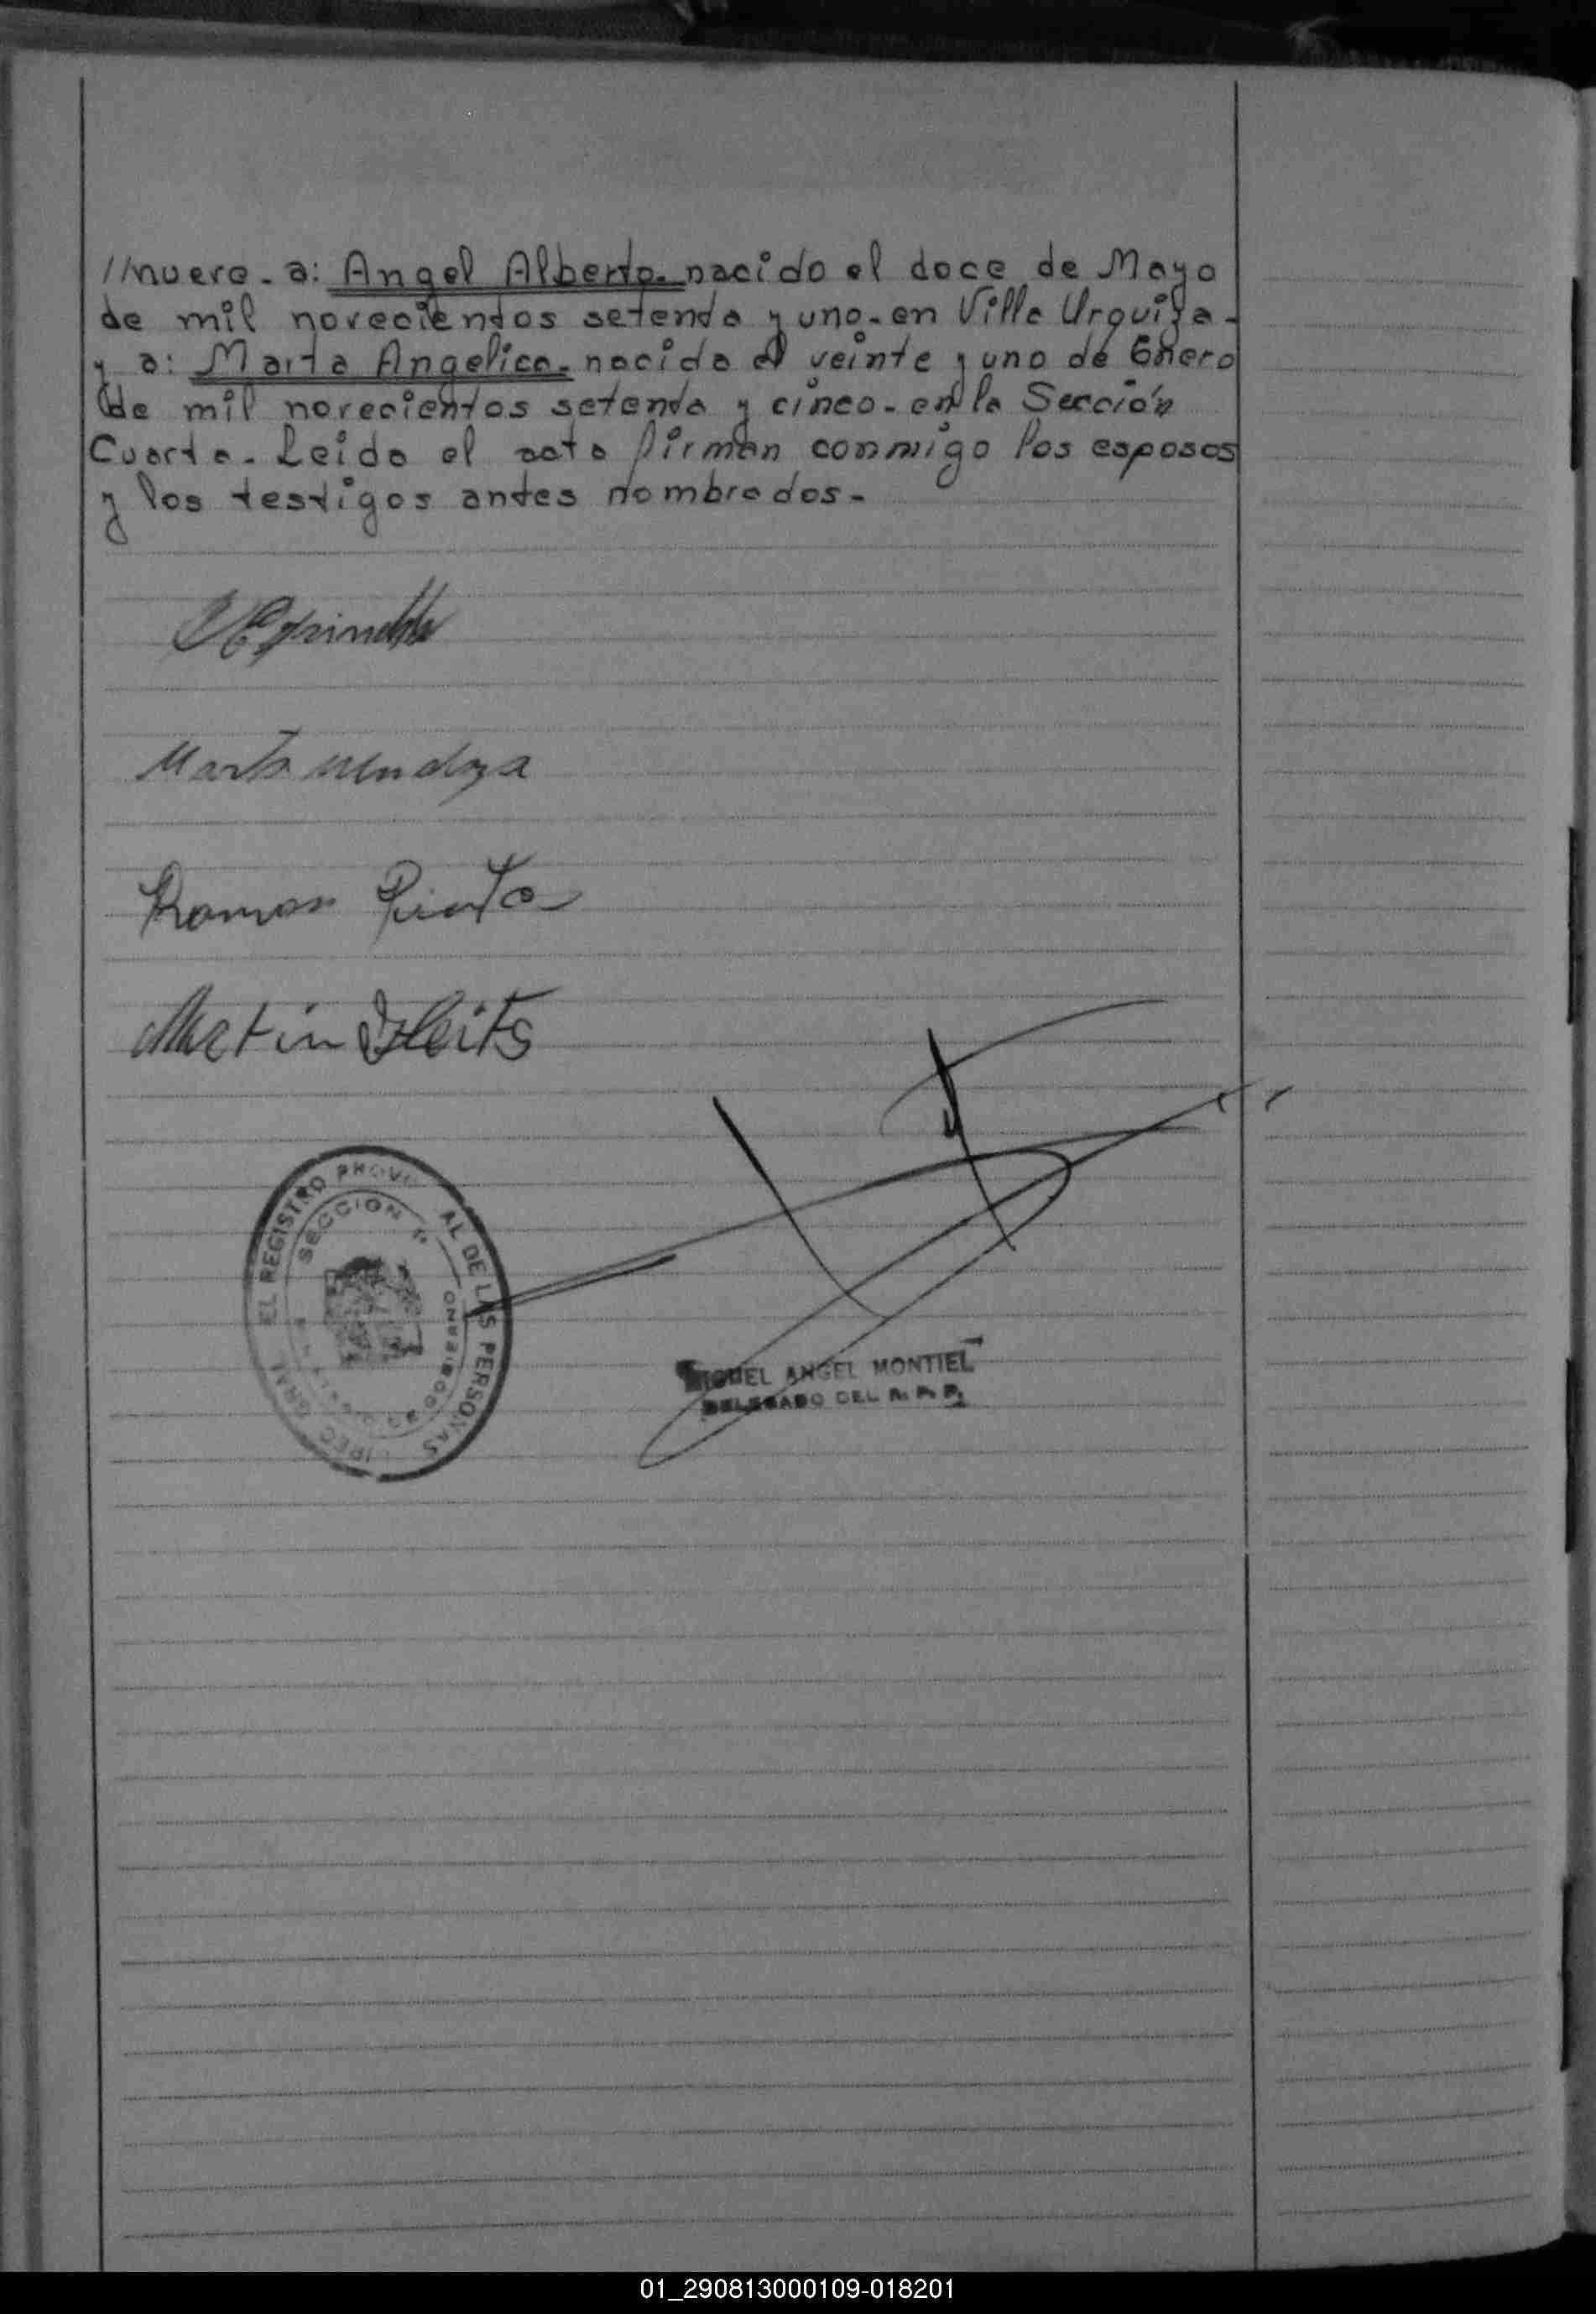 //nuere. a: Angel Alberto. nacido el doce de Mayo
de mil novecientos setenta y uno. en Villa Urquiza.
y a: Marta Angelica. nacida el veinte y uno de Enero
de mil novecientos setenta y cinco. en la Sección
Cuarta. Leida el acta firman conmigo los esposos
y los testigos antes nombrados.
Marta Mendoza
Ramon Pinto
Martin
EL REGISTRO PROVI AL DE LAS PERSONAS
SECCION
GOBIERNO
MIGUEL ANGEL MONTIEL
DELEGADO DEL R. P. P.
01_290813000109-018201